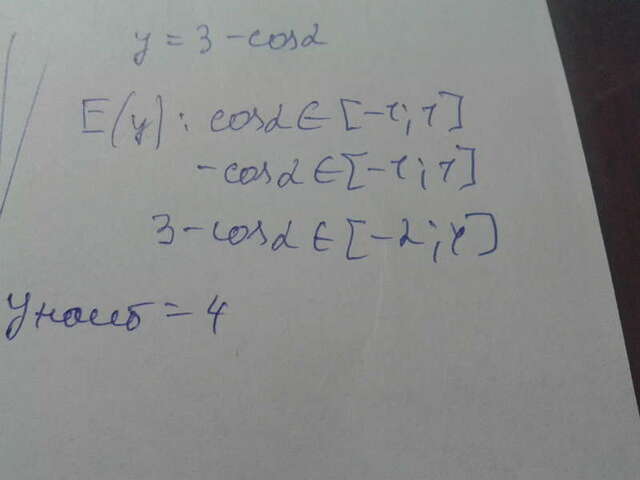 y = 3 - cosα
E(y): cosα ∈ [-1; 1]
-cosα ∈ [-1; 1]
3 - cosα ∈ [-2; 4]
yнаиб = 4